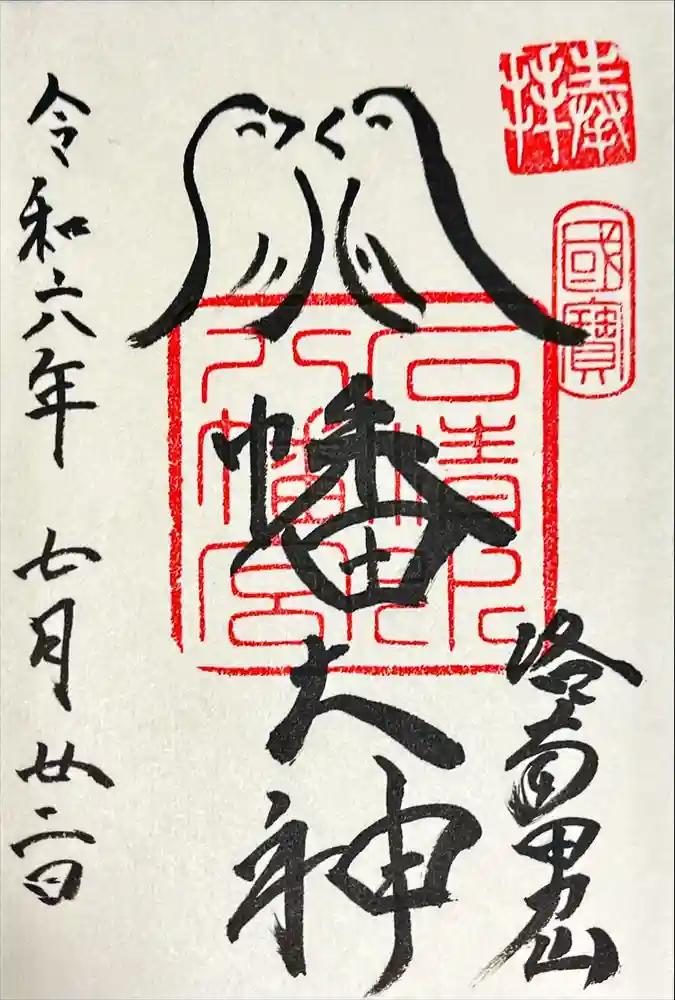 奉拝
國寶
洛南男山
八幡大神
石清水
八幡宮
令和六年 七月廿二日